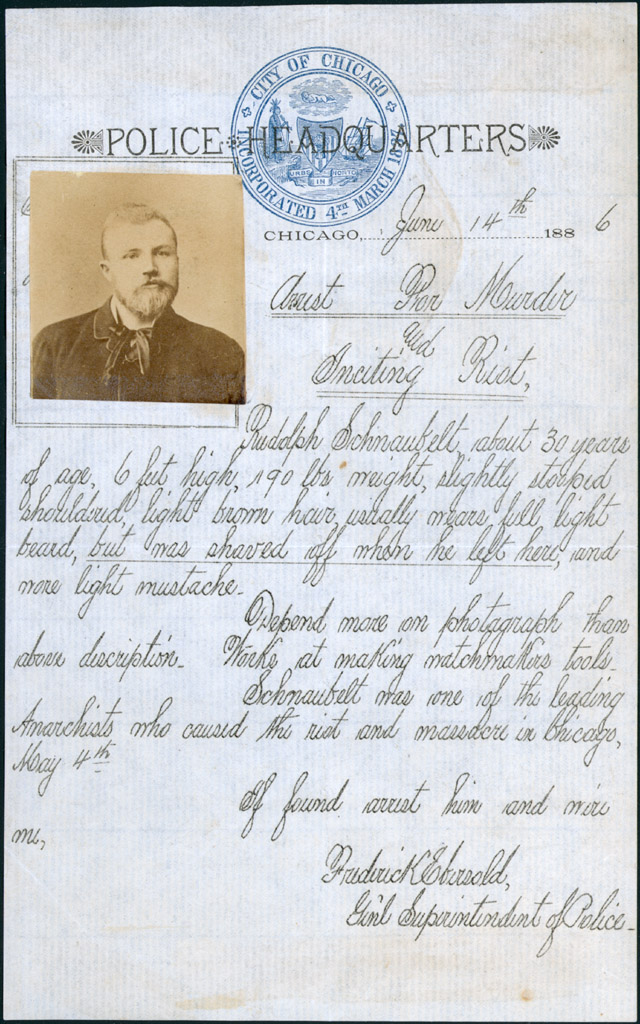 CITY OF CHICAGO
INCORPORATED 4TH MARCH 1837
URBS IN HORTO
POLICE HEADQUARTERS
CHICAGO, June 14th 1886
Arrest For Murder
and
Inciting Riot,
Rudolph Schnaubelt, about 30 years
of age, 6 feet high, 190 lbs weight, slightly stooped
shouldred, light brown hair, usually wears full, light
beard, but was shaved off when he left here, and
wore light mustache.
Depend more on photagraph than
above discription. Works at making watchmakers tools.
Schnaubelt was one of the leading
Anarchists who caused the riot and massacre in Chicago,
May 4th
If found arrest him and wire
me,
Frederick Ebersold,
Gen'l Superintendent of Police.